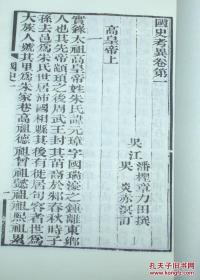 國史考異卷第一
吳江 潘檉章力田撰
吳 炎赤溟訂
高皇帝上
實錄太祖高皇帝姓朱諱元璋字國瑞濠之鍾離東鄉
人也其先帝顓頊之後周武王封其苗裔於邾春秋時子
孫去邑爲朱氏世居沛國相縣其後有徙居句容者世爲
大族人號其里爲朱家巷高祖德祖曾祖懿祖祖熙祖累
國史一